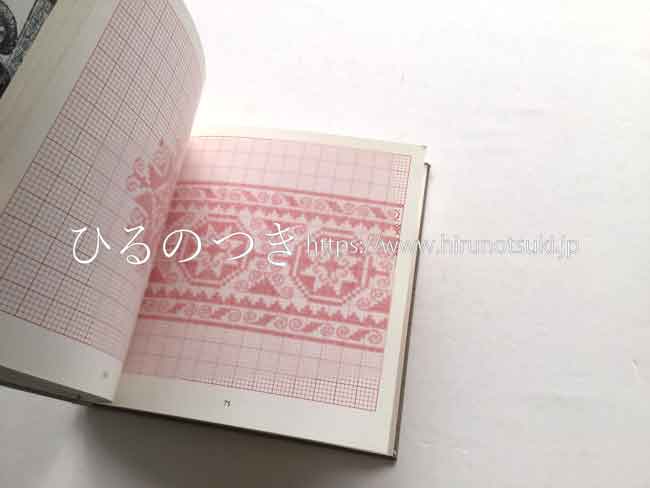 ひるのつき https://www.hirunotsuki.jp
75